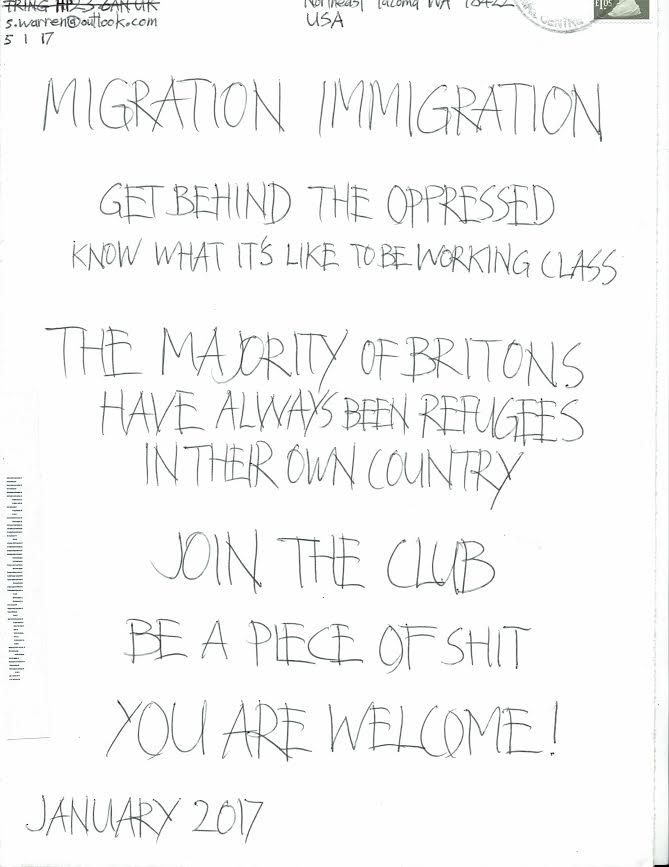 TRING UK
s.warren@outlook.com
5 1 17
Northeast Tacoma WA 98422
USA
MIGRATION IMMIGRATION
GET BEHIND THE OPPRESSED
KNOW WHAT IT'S LIKE TO BE WORKING CLASS
THE MAJORITY OF BRITONS
HAVE ALWAYS BEEN REFUGEES
IN THEIR OWN COUNTRY
JOIN THE CLUB
BE A PIECE OF SHIT
YOU ARE WELCOME!
JANUARY 2017